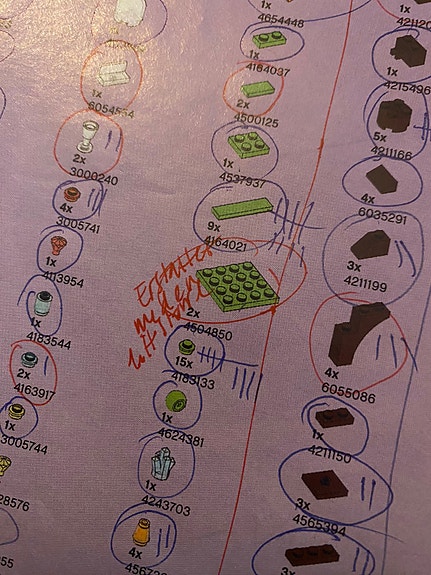 1x
6054554
2x
3000240
4x
3005741
1x
4113954
1x
4183544
2x
4163917
1x
3005744
28576
1x
4654448
1x
4164037
2x
4500125
1x
4537937
9x
4164021
Erhältlich
2x
4504850
15x
4183133
1x
4624381
1x
4243703
4x
1x
42112
1x
4215496
5x
4211166
4x
6035291
3x
4211199
4x
6055086
1x
4211150
3x
4565394
3x